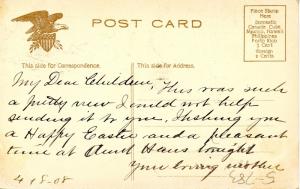 POST CARD
Place Stamp
Here
Domestic
Canada, Cuba,
Mexico, Hawaii
Philippines
Porto Rico
1 Cent
Foreign
2 Cents
This side for Correspondence.
This side for Address.
My Dear Children, This was such
a pretty view I could not help
sending it to you. Wishing you
a Happy Easter and a pleasant
time at Aunt tonight
Your loving mother
4 18-08